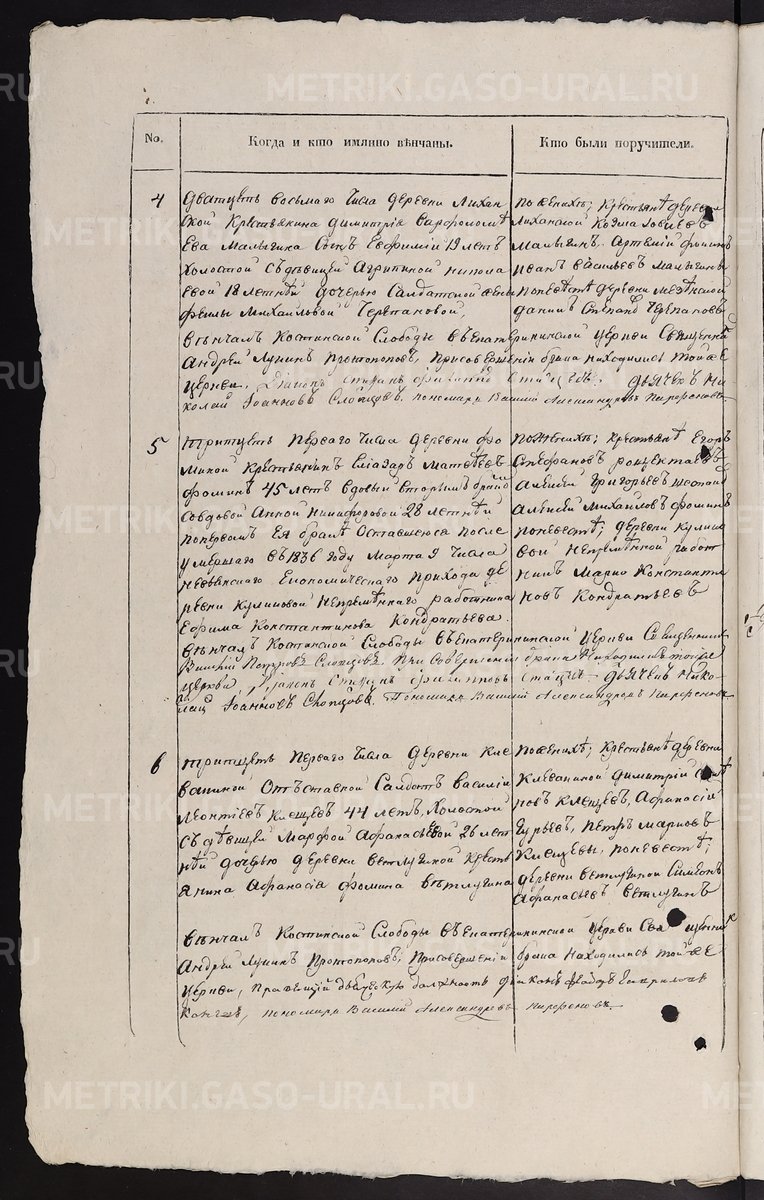 METRIKI.GASO-URAL.RU
No. Когда и кто имянно вѣнчаны. Кто были поручители.
4
дватцеть восьмаго числа деревни Лихан
ской крестьянина Димитрія Варфоломѣ
ева Малыгина сынъ Евфимій 19 летъ
холостой съ девицей Агрипиной Никола
евой 18 летнѣй дочерью салдатской жены
Феклы Михайловой Черепановой,
вѣнчалъ Костинской Слободы Екатерининской церкви Священникъ
Андрей Лукинъ Протопоповъ, при совершеніи брака находились той же
церкви, Діаконъ дьячекъ Ни
колай Іоанновъ Слопцовъ, пономарь Василий Александровъ
по женихѣ; крестьяне деревни
Лиханской Козма
Малыгинъ, Артемій
Иванъ Васильевъ Малыгины
по невѣстѣ деревни
Данилъ Степанъ Черепановъ
5
тритцеть перваго числа деревни Фо
миной крестьянинъ Елиазаръ Матвѣевъ
Фоминъ 45 летъ вдовый вторымъ бракомъ
со вдовой Анной Никифоровой 28 летнѣй
по первомъ ея бракѣ оставшеюся после
умершаго въ 1836 году Марта 9 числа
Невьянскаго Економическаго прихода де
ревни Куликовой непремѣннаго работника
Ефима Константинова Кондратьева.
вѣнчалъ Костинской Слободы Екатерининской церкви Священникъ
Валерій Петровъ Словцовъ. При совершеніи брака находились той же
церкви, Діаконъ дьячекъ Нико
лай Іоанновъ Пономарь Василий Александровъ
по женихѣ; крестьяне Егоръ
Стефановъ
Алексей Григорьевъ
Алексей Михайловъ Фоминъ
по невестѣ; деревни Кулик
вой непремѣнной работ
никъ Марко Константи
новъ Кондратьевъ
6
тритцеть перваго числа деревни Кле
вакиной отъставной салдатъ Василій
Леонтіевъ Клещевъ 44 летъ, холостой
съ дѣвицей Марфой Афанасьевой 26 лет
нѣй дочерью деревни Ветлугиной кресть
янина Афанасія Фомина Вѣтлугина
вѣнчалъ Костинской Слободы Екатерининской церкви Священникъ
Андрей Лукинъ Протопоповъ, при совершеніи брака находились той же
церкви, правящій дьяческую должность діаконъ Гавриловъ
пономарь Василий Александровъ
по женихѣ; крестьяне деревни
Клевакиной Димитрій
новъ Клещевъ, Афанасій
Гурьевъ, Петръ Марковъ
Клещевы, по невестѣ;
деревни Ветлугиной Симеонъ
Афанасьевъ Ветлугинъ
METRIKI.GASO-URAL.RU